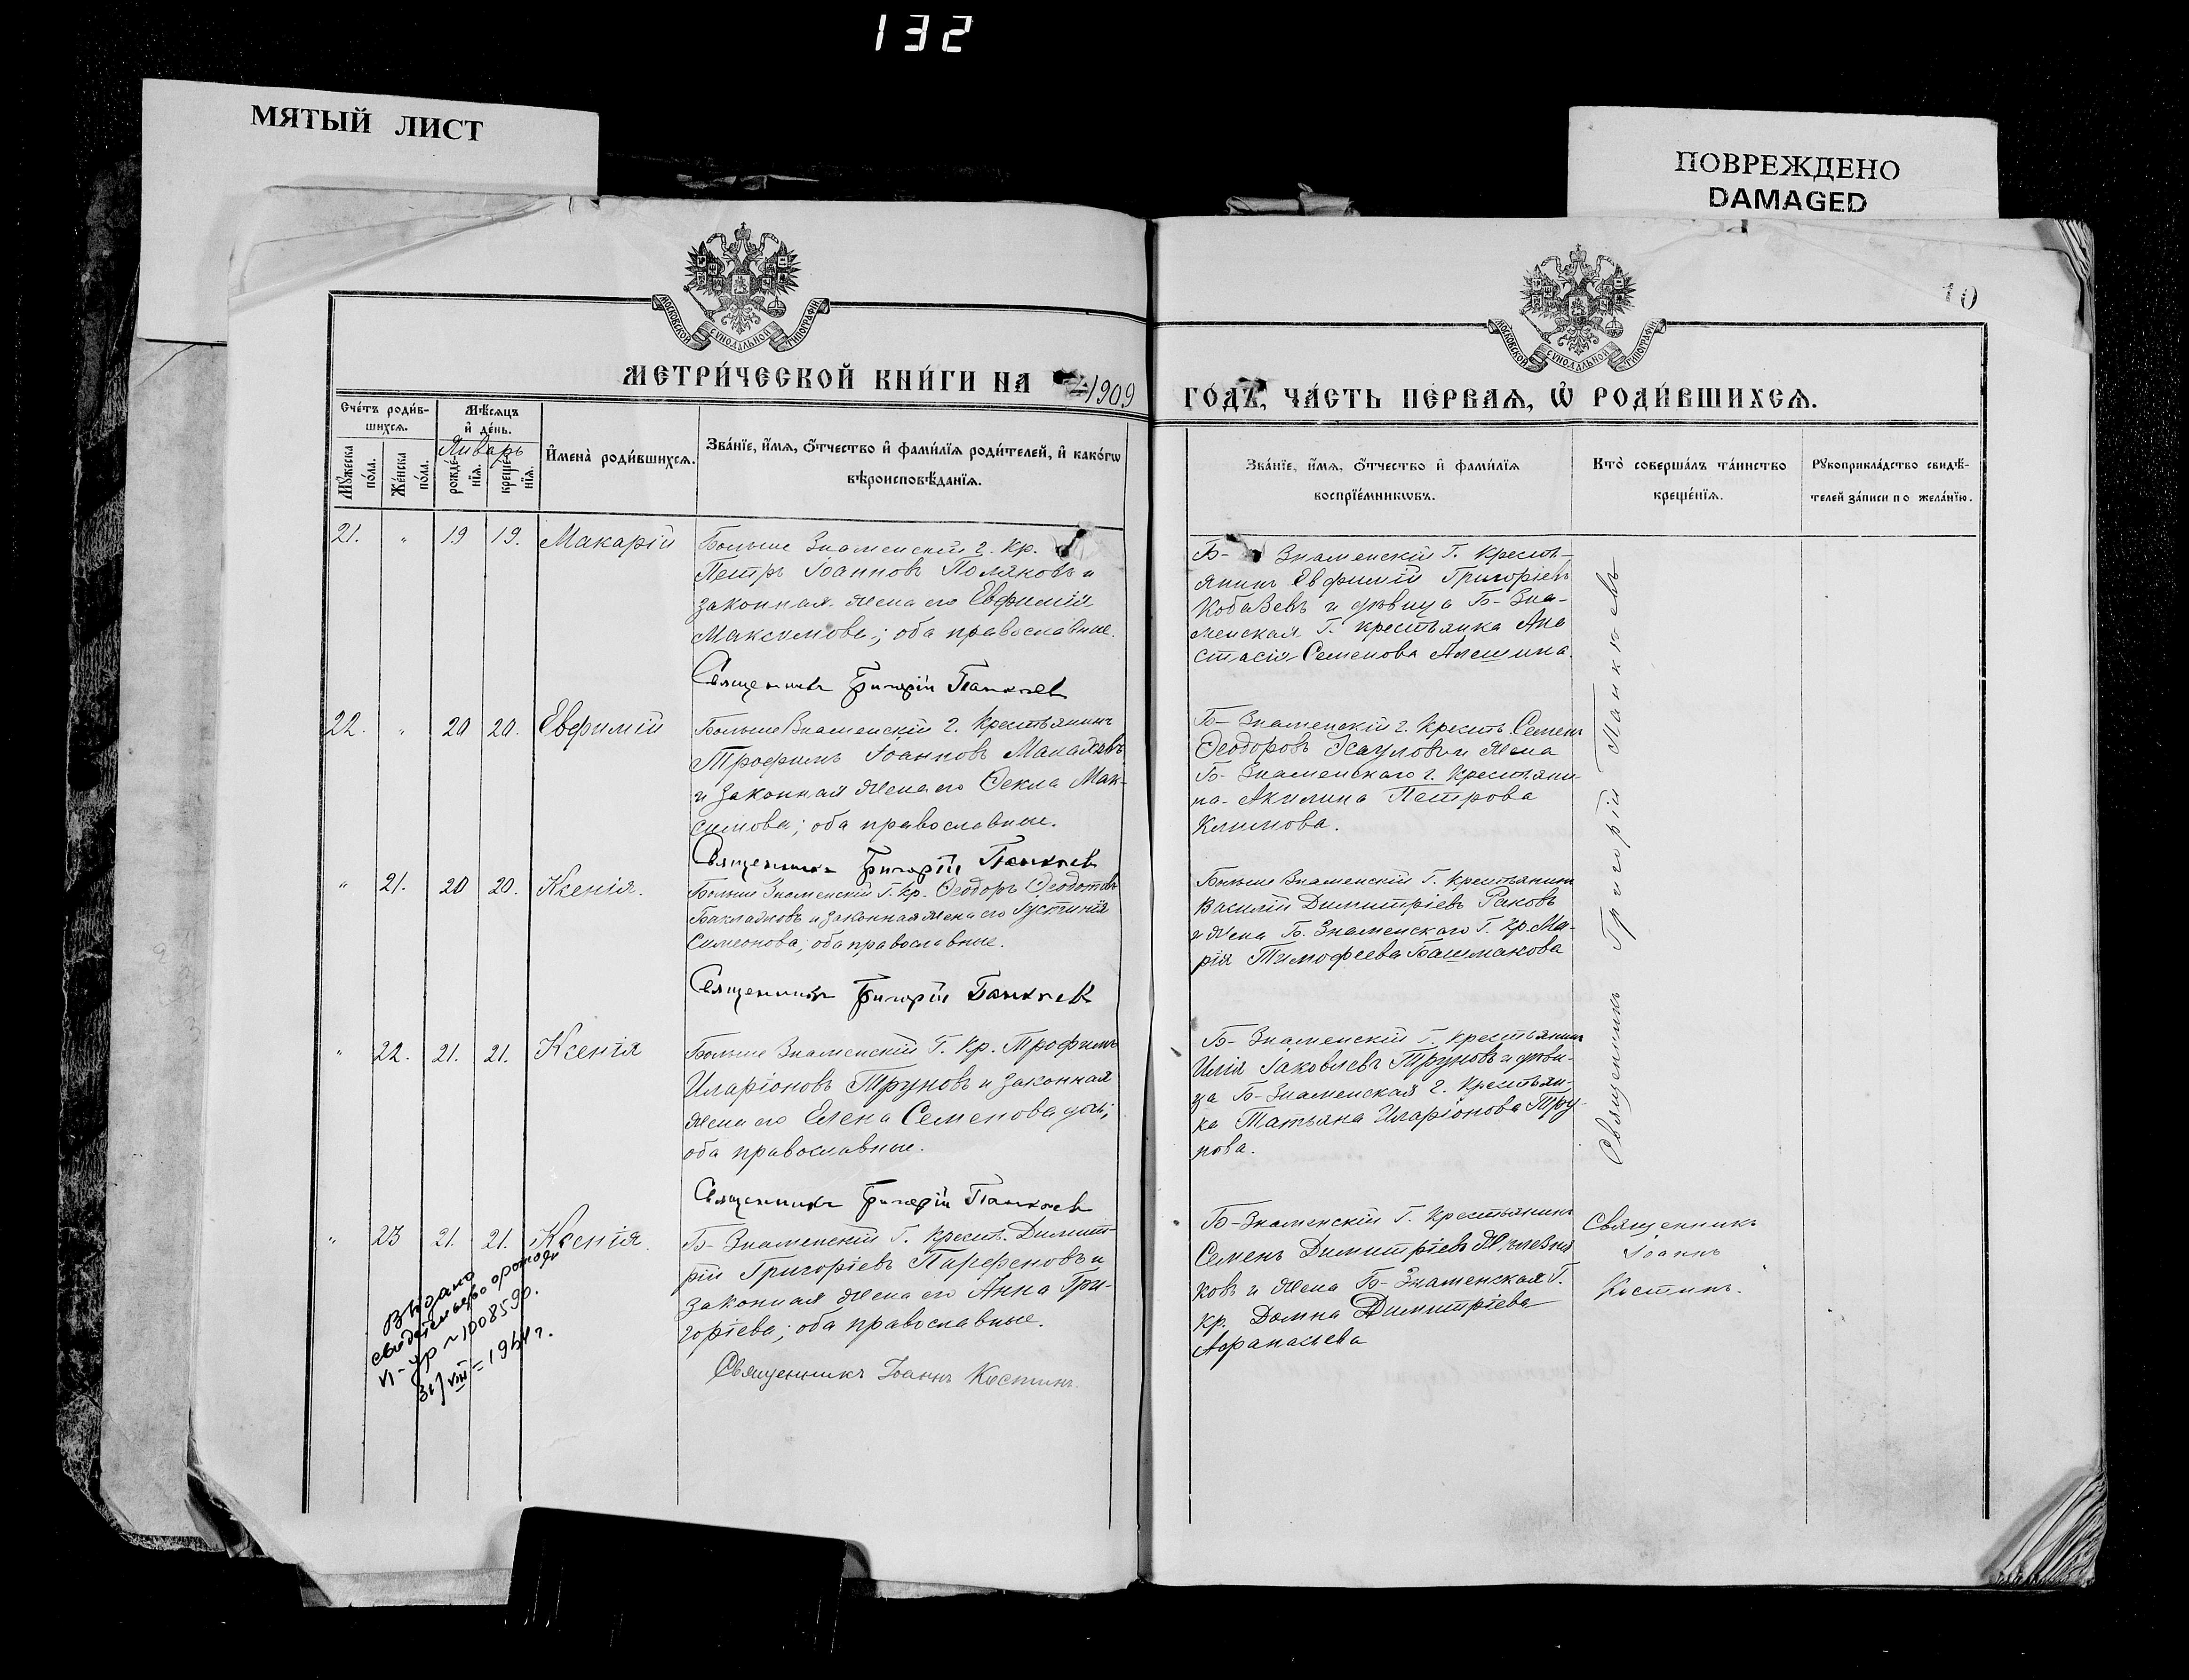 132
МЯТЫЙ ЛИСТ
ПОВРЕЖДЕНО
DAMAGED
10
МОСКОВСКОЙ СѴНОДАЛЬНОЙ ТИПОГРАФІИ
МОСКОВСКОЙ СѴНОДАЛЬНОЙ ТИПОГРАФІИ
МЕТРИ́ЧЕСКОЙ КНИ́ГИ НА 1909
ГО́ДЪ, ЧА́СТЬ ПЕ́РВАЯ, Ѡ РОДИ́ВШИХСЯ.
Сче́тъ роди́в-
шихся.
Му́жеска по́ла.
Же́нска по́ла.
Мѣ́сяцъ
и де́нь.
Январь
рожде́-
нїя.
креще́-
нїя.
Имена̀ роди́вшихся.
Зва́нїе, и́мя, о́тчество и фами́лїя роди́телей, и како́гѡ
вѣроисповѣ́данїя.
Зва́нїе, и́мя, о́тчество и фами́лїя
воспрїе́мникѡвъ.
Кто̀ соверша́лъ та́инство
креще́нїя.
Рукоприкла́дство свидѣ́-
телей за́писи по жела́нїю.
21. " 19 19. Макарій
Больше Знаменскій г. Кр.
Петръ Іоанновъ Поляковъ и
законная жена его Евфимія
Максимова; оба православные.
Священникъ Григорій Панкѣев
Б- Знаменскій Г. Кресть-
янинъ Евфимій Григорьевъ
Кобазевъ и дѣвица Б- Зна-
менская Г. крестьянка Ана
стасія Семенова Алешина.
22. " 20 20. Евфимій
Больше Знаменскій г. Крестьянинъ
Трофимъ Іоанновъ
и законная жена его Ѳекла Мак-
симова; оба православные.
Священникъ Григорій Панкѣев
Б- Знаменскій г. Крестъ. Семенъ
Ѳеодоровъ Есауловъ и жена
Б- Знаменскаго г. Крестьяни-
на Акилина Петрова
Климова.
" 21. 20 20. Ксенія.
Больше Знаменскій Г. Кр. Ѳеодоръ Ѳеодотовъ
Баклановъ и законная жена его Іустинія
Симеонова; оба православные.
Священникъ Григорій Панкѣев
Больше Знаменскій Г. Крестьянинъ
Василій Димитріевъ Раковъ
и жена Б. Знаменскаго Г. Кр. Ма-
рія Тимофеева Башмакова
" 22. 21. 21. Ксенія
Больше Знаменскій Г. Кр. Трофимъ
Иларіоновъ Труновъ и законная
жена его Елена Семенова дочь;
оба православные.
Священникъ Григорій Панкѣев
Б- Знаменскій Г. Крестьянинъ
Илія Іаковлевъ Труновъ и дѣви-
ца Б- Знаменская г. Крестьян-
ка Татьяна Иларіонова Тру-
нова.
Священникъ Григорій Панкѣевъ
" 23 21. 21. Ксенія.
Б- Знаменскій Г. Крестъ. Димит-
рій Григоріевъ Парфеновъ и
законная жена его Анна Гри-
горіева; оба православные.
Священникъ Іоаннъ Костинъ.
Б- Знаменскій Г. Крестьянинъ
Семенъ Димитріевъ
ковъ и жена Б- Знаменская Г.
кр. Домна Димитріева
Афанасьева
Священникъ
Іоаннъ
Костинъ.
Выдано
свидетельство о рожден
VI-ур № 1008590.
31/VIII = 1944 г.